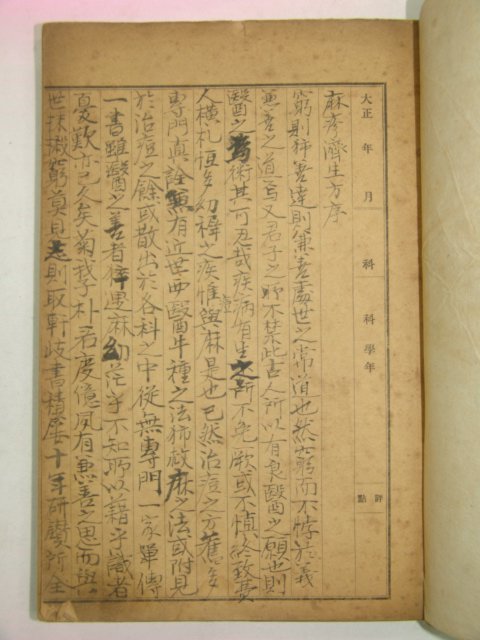 大正 年 月 科 科學年 評點
麻疹濟生方序
窮則獨善達則兼善處世之常道也然窮而不悖於義
兼善之道焉又君子之所不禁此古人所以有良醫之願也則
醫之爲術其可忽哉疾病有生之所不免厥或不愼終致長
人橫札恒多幼稺之疾惟與麻是也已然治痘之方舊多
專門眞詮兼有近世西醫牛種之法獅麻之法或附見
於治痘之餘或散出於各科之中從無專門一家單傳
一書雖醫之善者倅遇麻幼茫乎不知所以藉乎識者
憂歎亦已久矣菊我李朴君度億夙有兼善之思而與
世抹摋窮莫見志則取軒歧書積屢十年研鑽所全